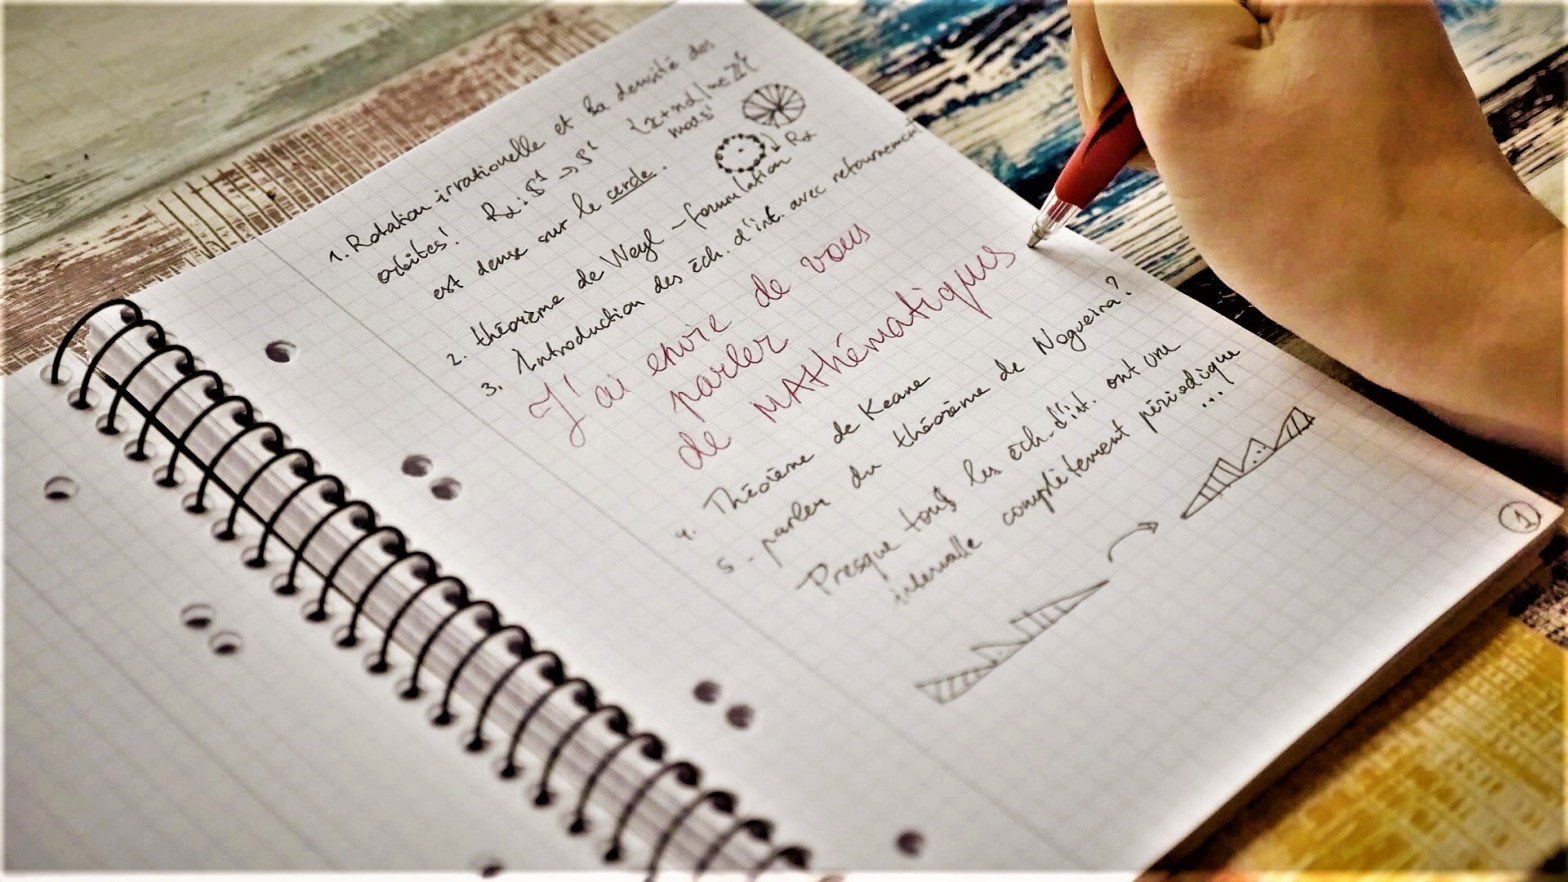 1. Rotation irrationnelle et la densité des
orbites! Rα : S¹ → S¹ {x+nα | n∈ℤ}
est dense sur le cercle. mod 1
Rα
2. théorème de Weyl - formulation
3. Introduction des éch. d'int. avec retournement
J'ai envie de vous
parler
de MAthématiques
4. Théorème de Keane
5. parler du théorème de Nogueira?
Presque tous les éch. d'int. ont une
intervalle complètement périodique
...
1